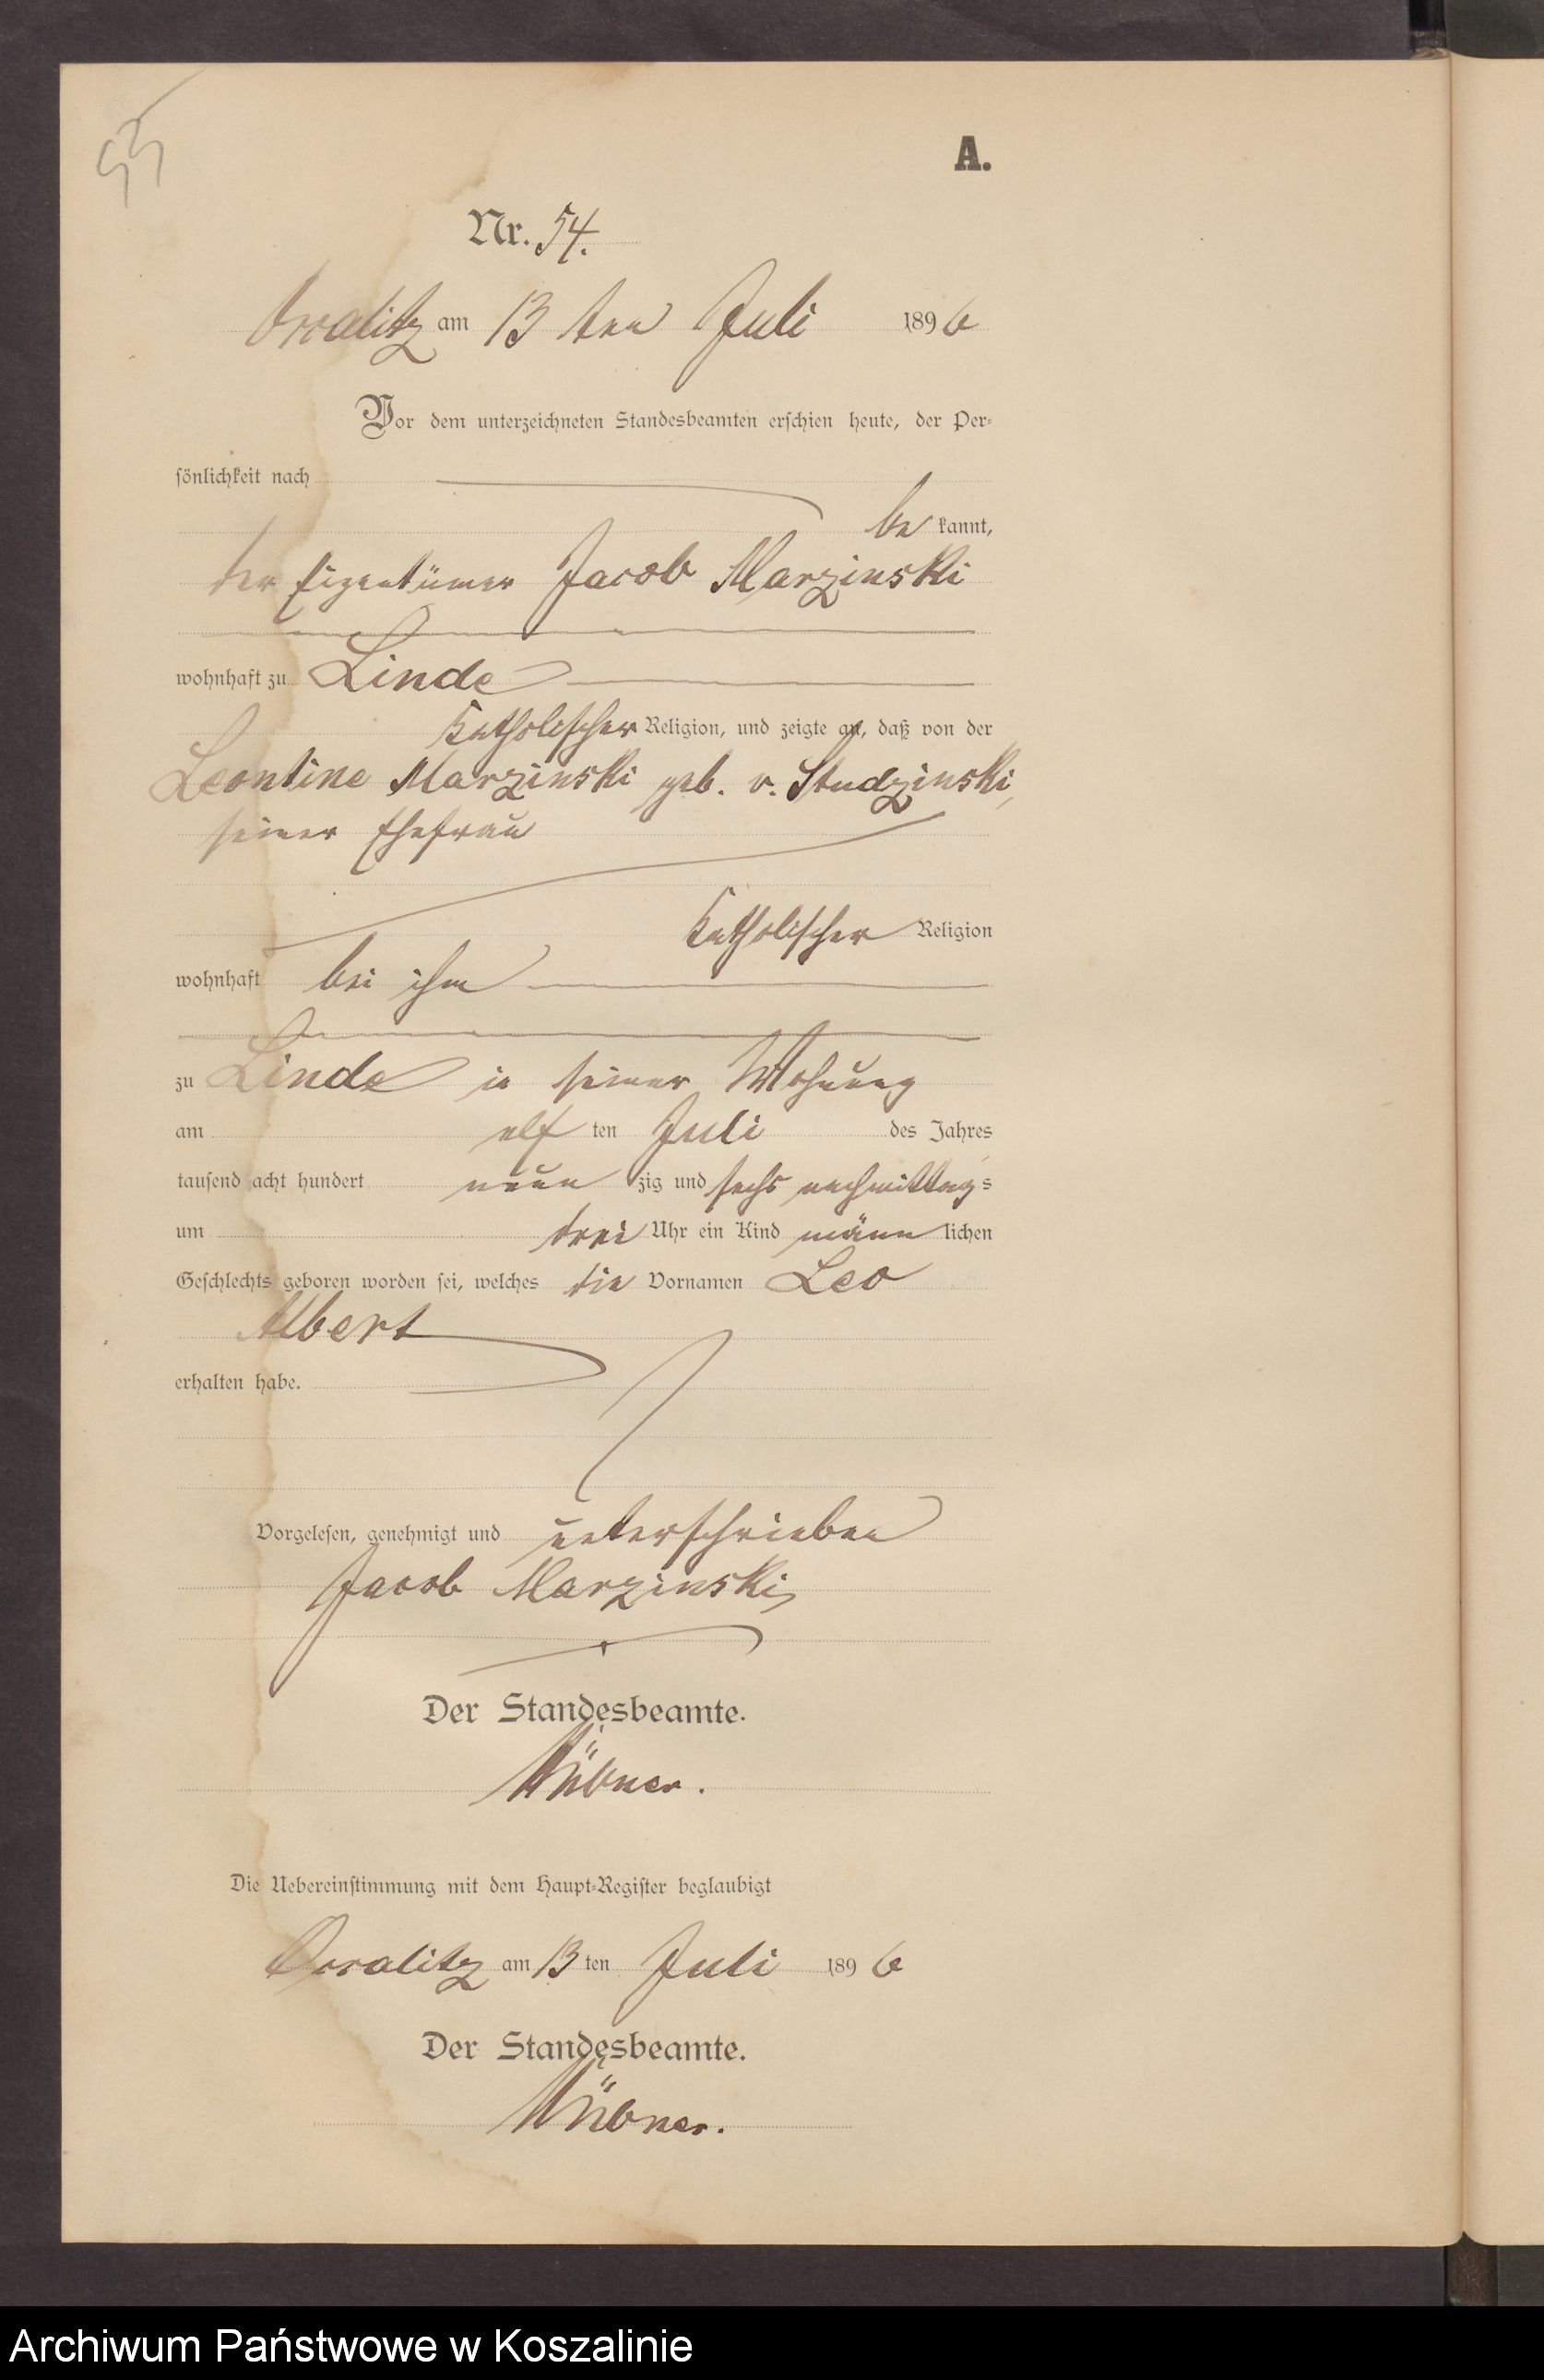 55
A.
Nr. 54.
am 13 ten Juli 1896
Vor dem unterzeichneten Standesbeamten erschien heute, der Per-
sönlichkeit nach
be kannt,
der Eigentümer Jacob Marzinski
wohnhaft zu Linde
katholischer Religion, und zeigte an, daß von der
Leontine Marzinski geb. v. Studzinski,
seiner Ehefrau
katholischer Religion
wohnhaft bei ihm
zu Linde in seiner Wohnung
am elf ten Juli des Jahres
tausend acht hundert neun zig und sechs nachmittags
um drei Uhr ein Kind männ lichen
Geschlechts geboren worden sei, welches die Vornamen Leo
Albert
erhalten habe.
Vorgelesen, genehmigt und unterschrieben
Jacob Marzinski
Der Standesbeamte.
Die Uebereinstimmung mit dem Haupt-Register beglaubigt
am 13 ten Juli 1896
Der Standesbeamte.
Archiwum Państwowe w Koszalinie